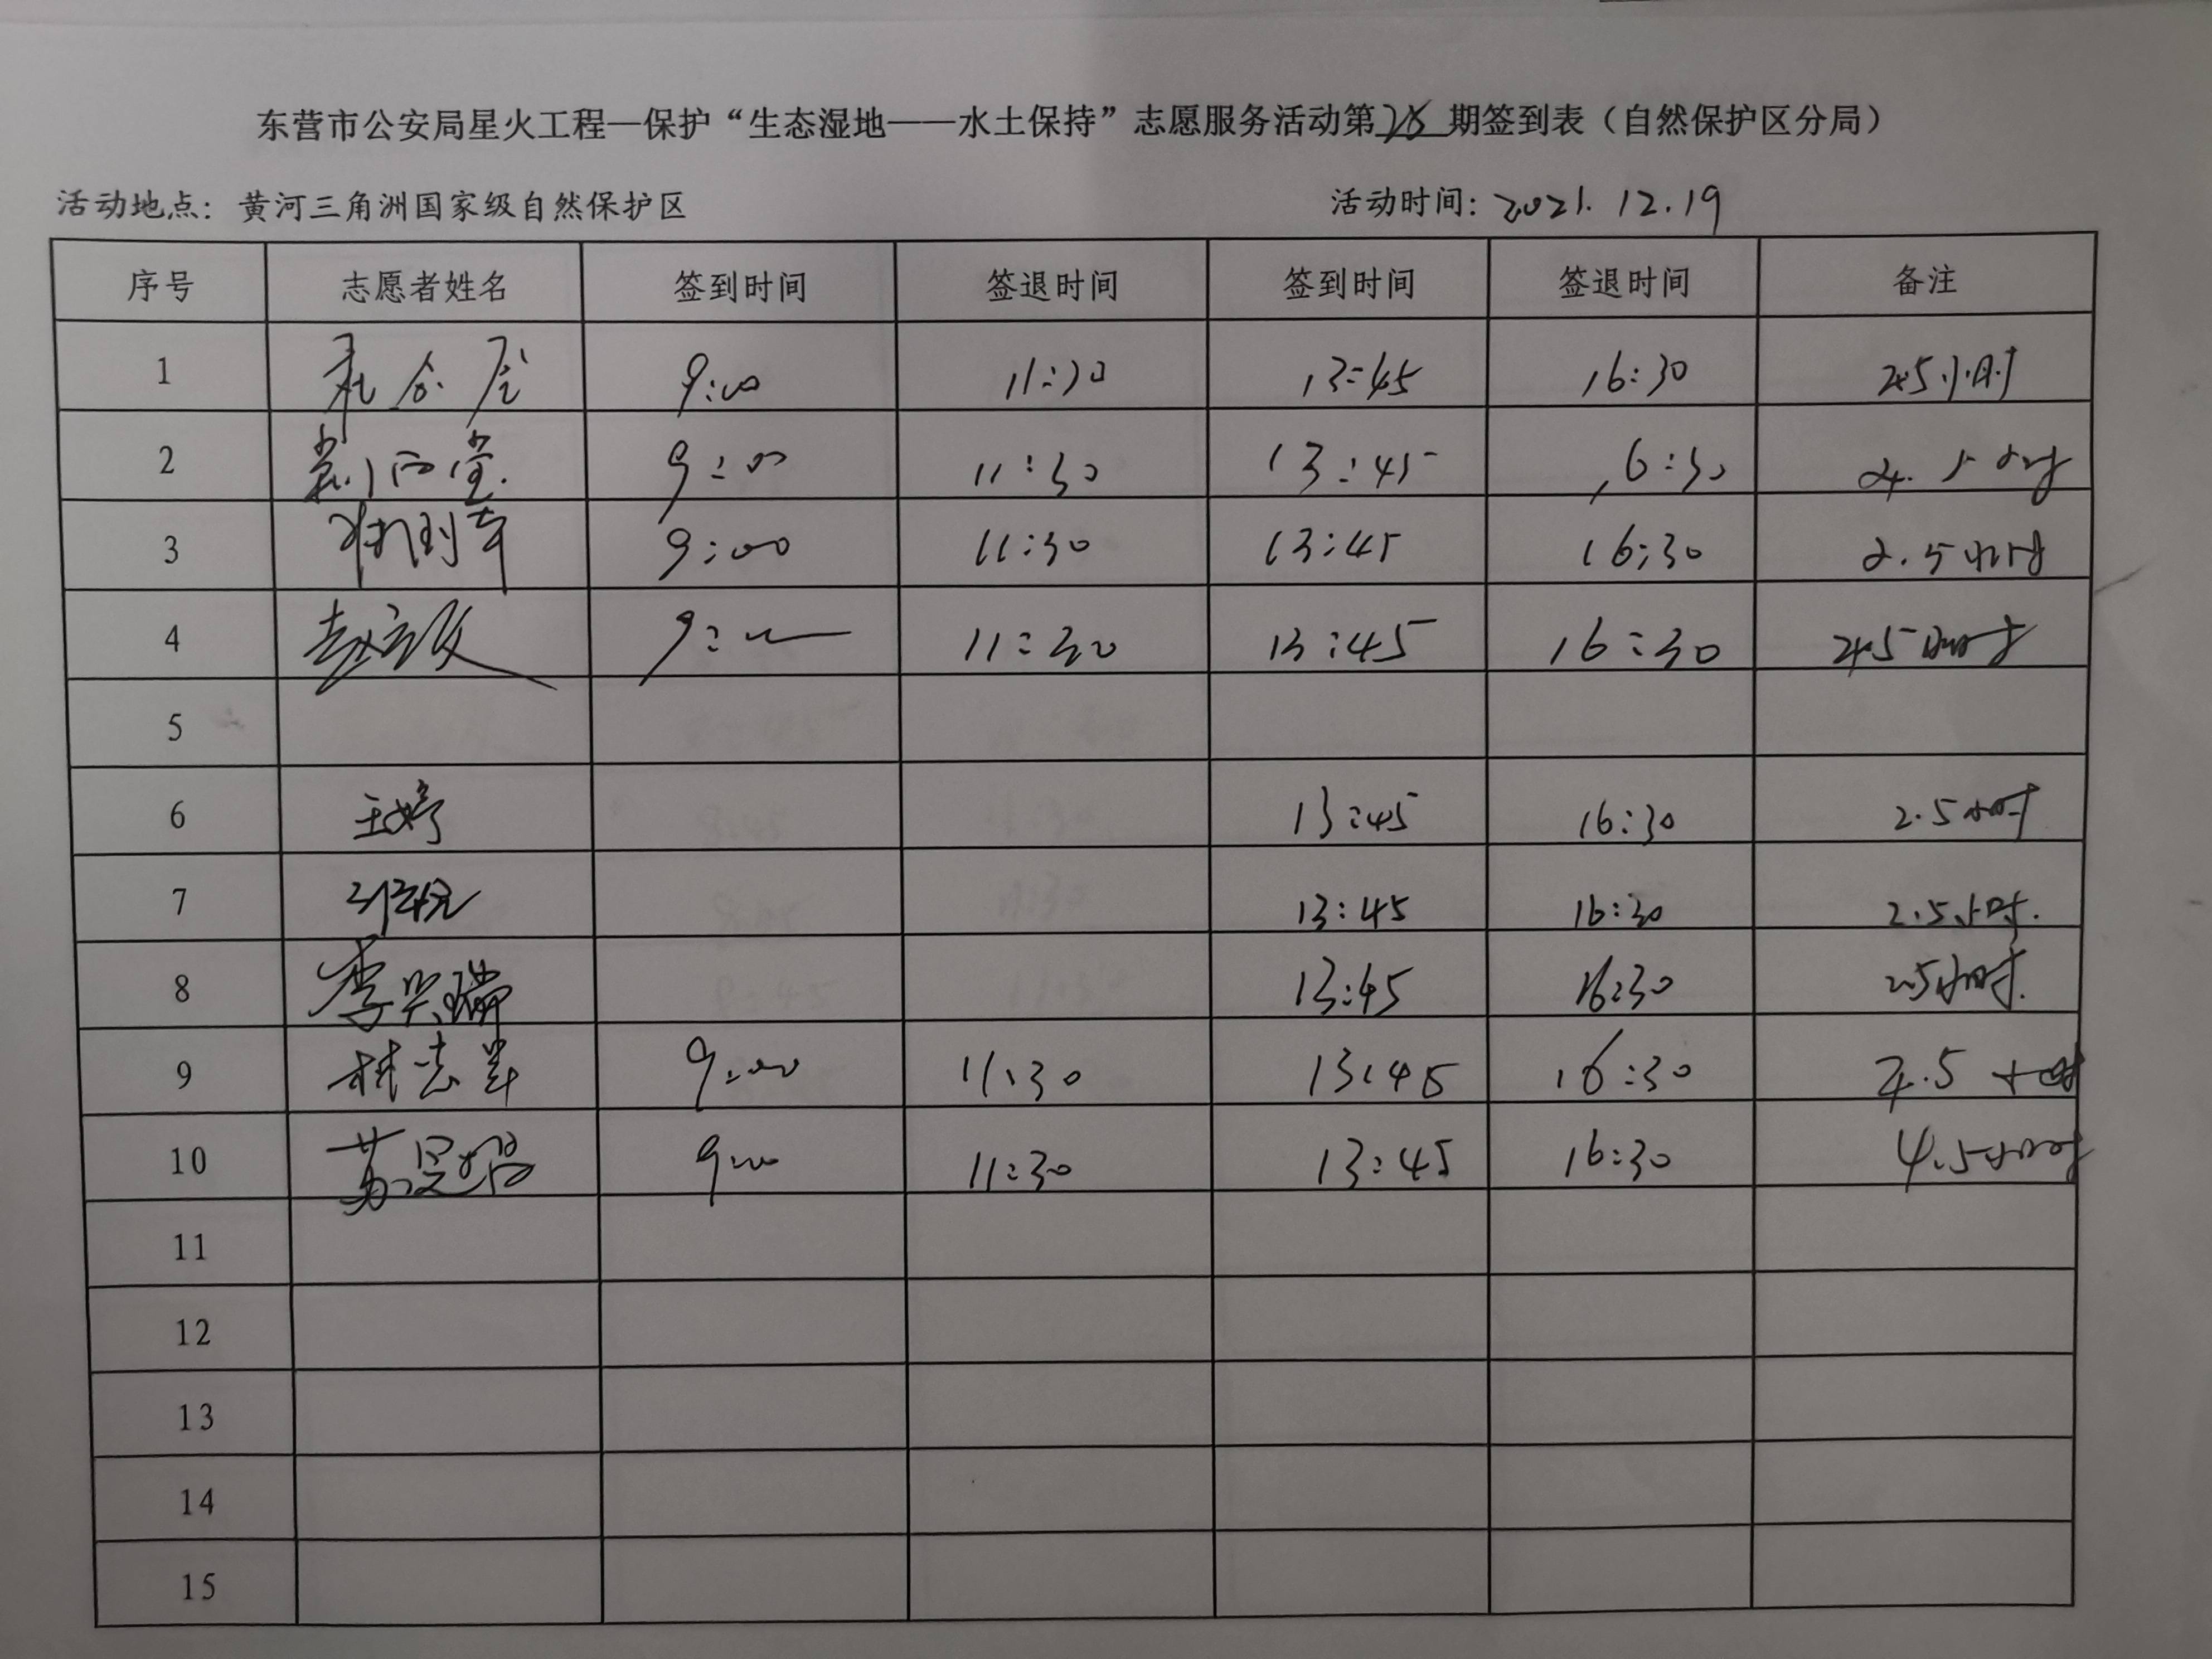 东营市公安局星火工程—保护“生态湿地——水土保持”志愿服务活动第28期签到表（自然保护区分局）
活动地点：黄河三角洲国家级自然保护区 活动时间：2021.12.19
序号 志愿者姓名 签到时间 签退时间 签到时间 签退时间 备注
1 9:00 11:30 13:45 16:30 小时
2 9:00 11:30 13:45 16:30 小时
3 9:00 11:30 13:45 16:30 2.5小时
4 9:00 11:30 13:45 16:30 小时
5
6 王婷 13:45 16:30 2.5小时
7 13:45 16:30 2.5小时.
8 李兴瑞 13:45 16:30 2.5小时.
9 林志军 9:00 11:30 13:45 16:30 小时
10 9:00 11:30 13:45 16:30 4.5小时
11
12
13
14
15